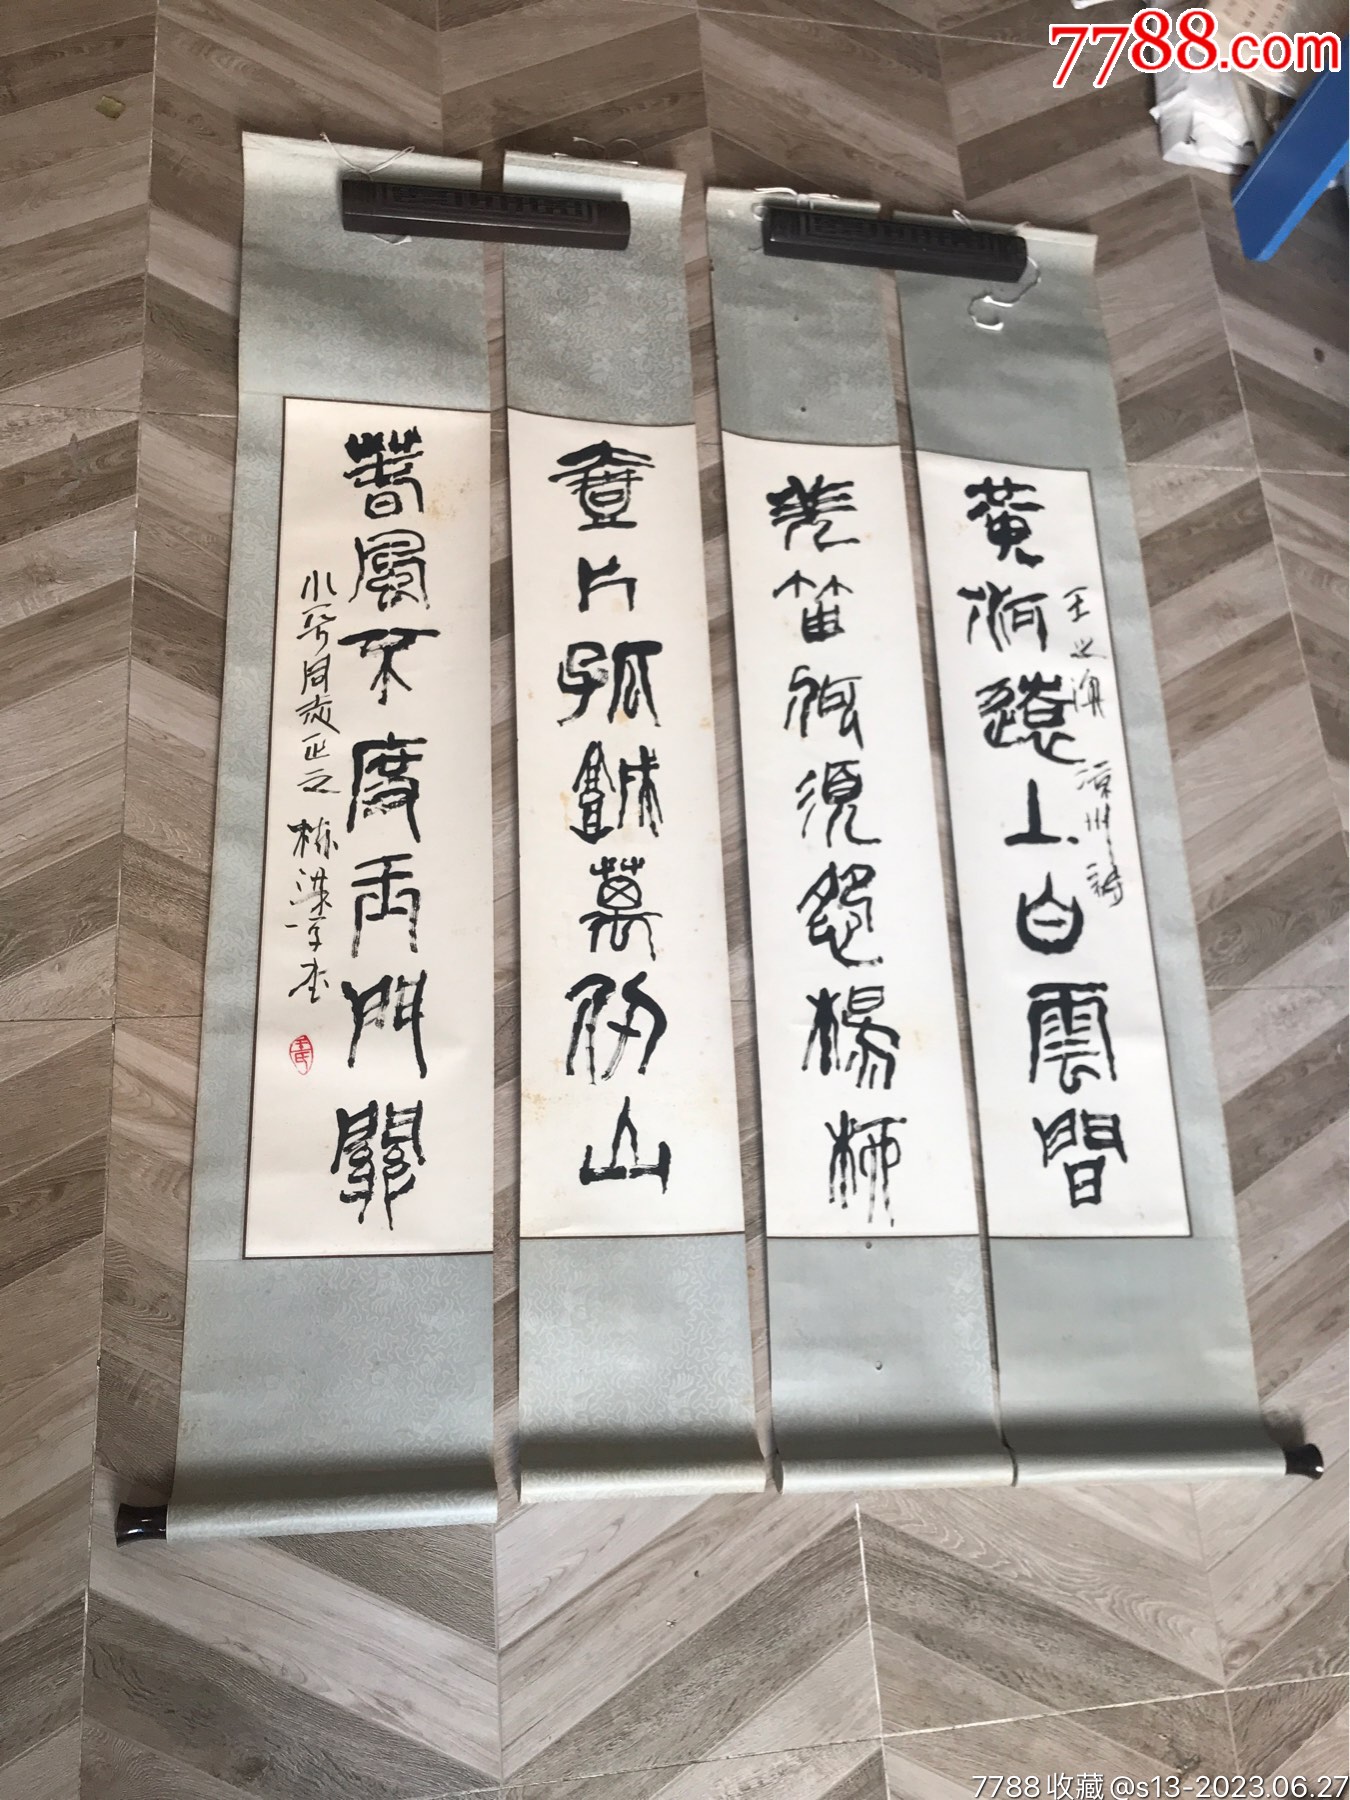 7788.com
王之渙 涼州詩
黃河遠上白雲間
羌笛何須怨楊柳
壹片孤城萬仞山
春風不度玉門關
同志正之
7788收藏@s13-2023.06.27